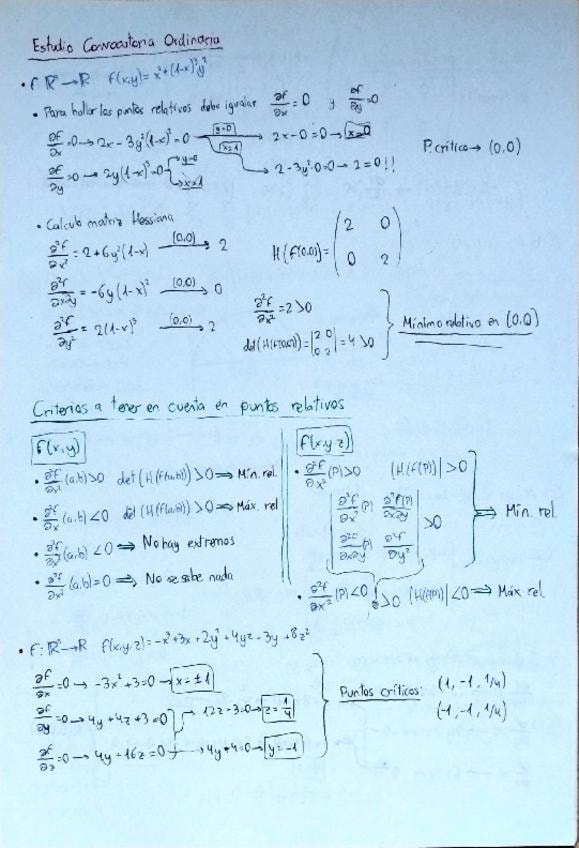 Estudio Convocatoria Ordinaria
• f: ℝ² → ℝ f(x,y) = x² + (1-x)³y²
• Para hallar los puntos relativos debo igualar ∂f/∂x = 0 y ∂f/∂y = 0
∂f/∂x = 0 → 2x - 3y²(1-x)² = 0 y=0 → 2x - 0 = 0 → x=0
x=1 → 2 - 3y²·0 = 0 → 2 = 0!!
P. crítico → (0,0)
∂f/∂y = 0 → 2y(1-x)³ = 0 → y=0 → x=1
• Calculo matriz Hessiana
∂²f/∂x² = 2 + 6y²(1-x) (0,0) → 2
H(f(0,0)) = (2 0
0 2)
∂²f/∂x∂y = -6y(1-x)² (0,0) → 0
∂²f/∂y² = 2(1-x)³ (0,0) → 2
∂²f/∂x² = 2 > 0
det(H(f(0,0))) = |2 0
0 2| = 4 > 0
Mínimo relativo en (0,0)
Criterios a tener en cuenta en puntos relativos
f(x,y)
• ∂²f/∂x² (a,b) > 0 det(H(f(a,b))) > 0 ⇒ Mín. rel.
• ∂²f/∂x² (a,b) < 0 det(H(f(a,b))) > 0 ⇒ Máx. rel
• ∂²f/∂x² (a,b) < 0 ⇒ No hay extremos
• ∂²f/∂x² (a,b) = 0 ⇒ No se sabe nada
f(x,y,z)
• ∂²f/∂x² (P) > 0 |H(f(P))| > 0
|∂²f/∂x² (P) ∂²f(P)/∂x∂y
∂²f/∂x∂y (P) ∂²f/∂y²| > 0
⇒ Mín. rel.
• ∂²f/∂x² (P) < 0 > 0 |H(f(P))| < 0 ⇒ Máx rel.
• f: ℝ³ → ℝ f(x,y,z) = -x³ + 3x + 2y² + 4yz + 3y + 8z²
∂f/∂x = 0 → -3x² + 3 = 0 → x = ±1
∂f/∂y = 0 → 4y + 4z + 3 = 0 → 12z - 3 = 0 → z = 1/4
∂f/∂z = 0 → 4y + 16z = 0 → 4y + 4 = 0 → y = -1
Puntos críticos: (1, -1, 1/4)
(-1, -1, 1/4)